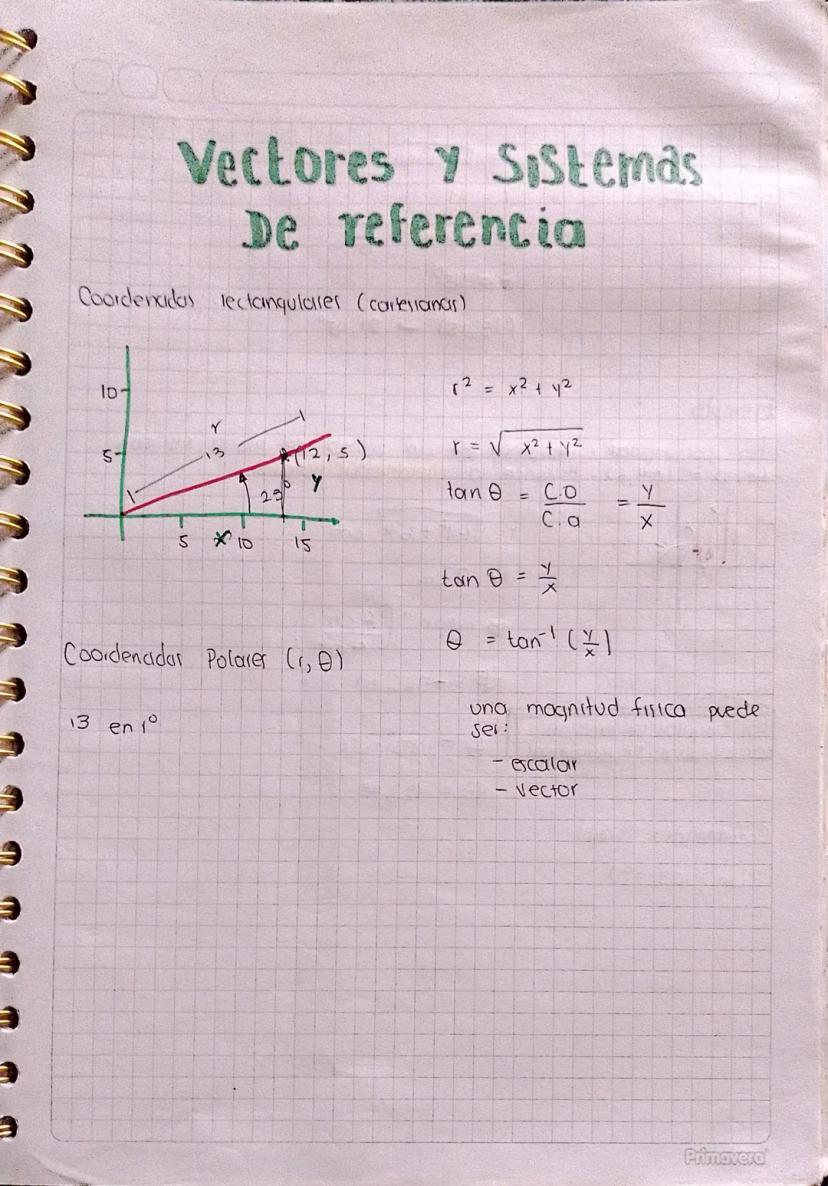 Vectores y Sistemas
De referencia
Coordenadas rectangulares (cartesianas)
10
5
r
13
(12, 5)
y
5
x
10
15
r² = x² + y²
r = √x² + y²
tan θ = C.O / C.a = y / x
tan θ = y/x
θ = tan⁻¹ (y/x)
Coordenadas Polares (r, θ)
13 en 1°
una magnitud fisica puede
ser:
- escalar
- vector
Primavera